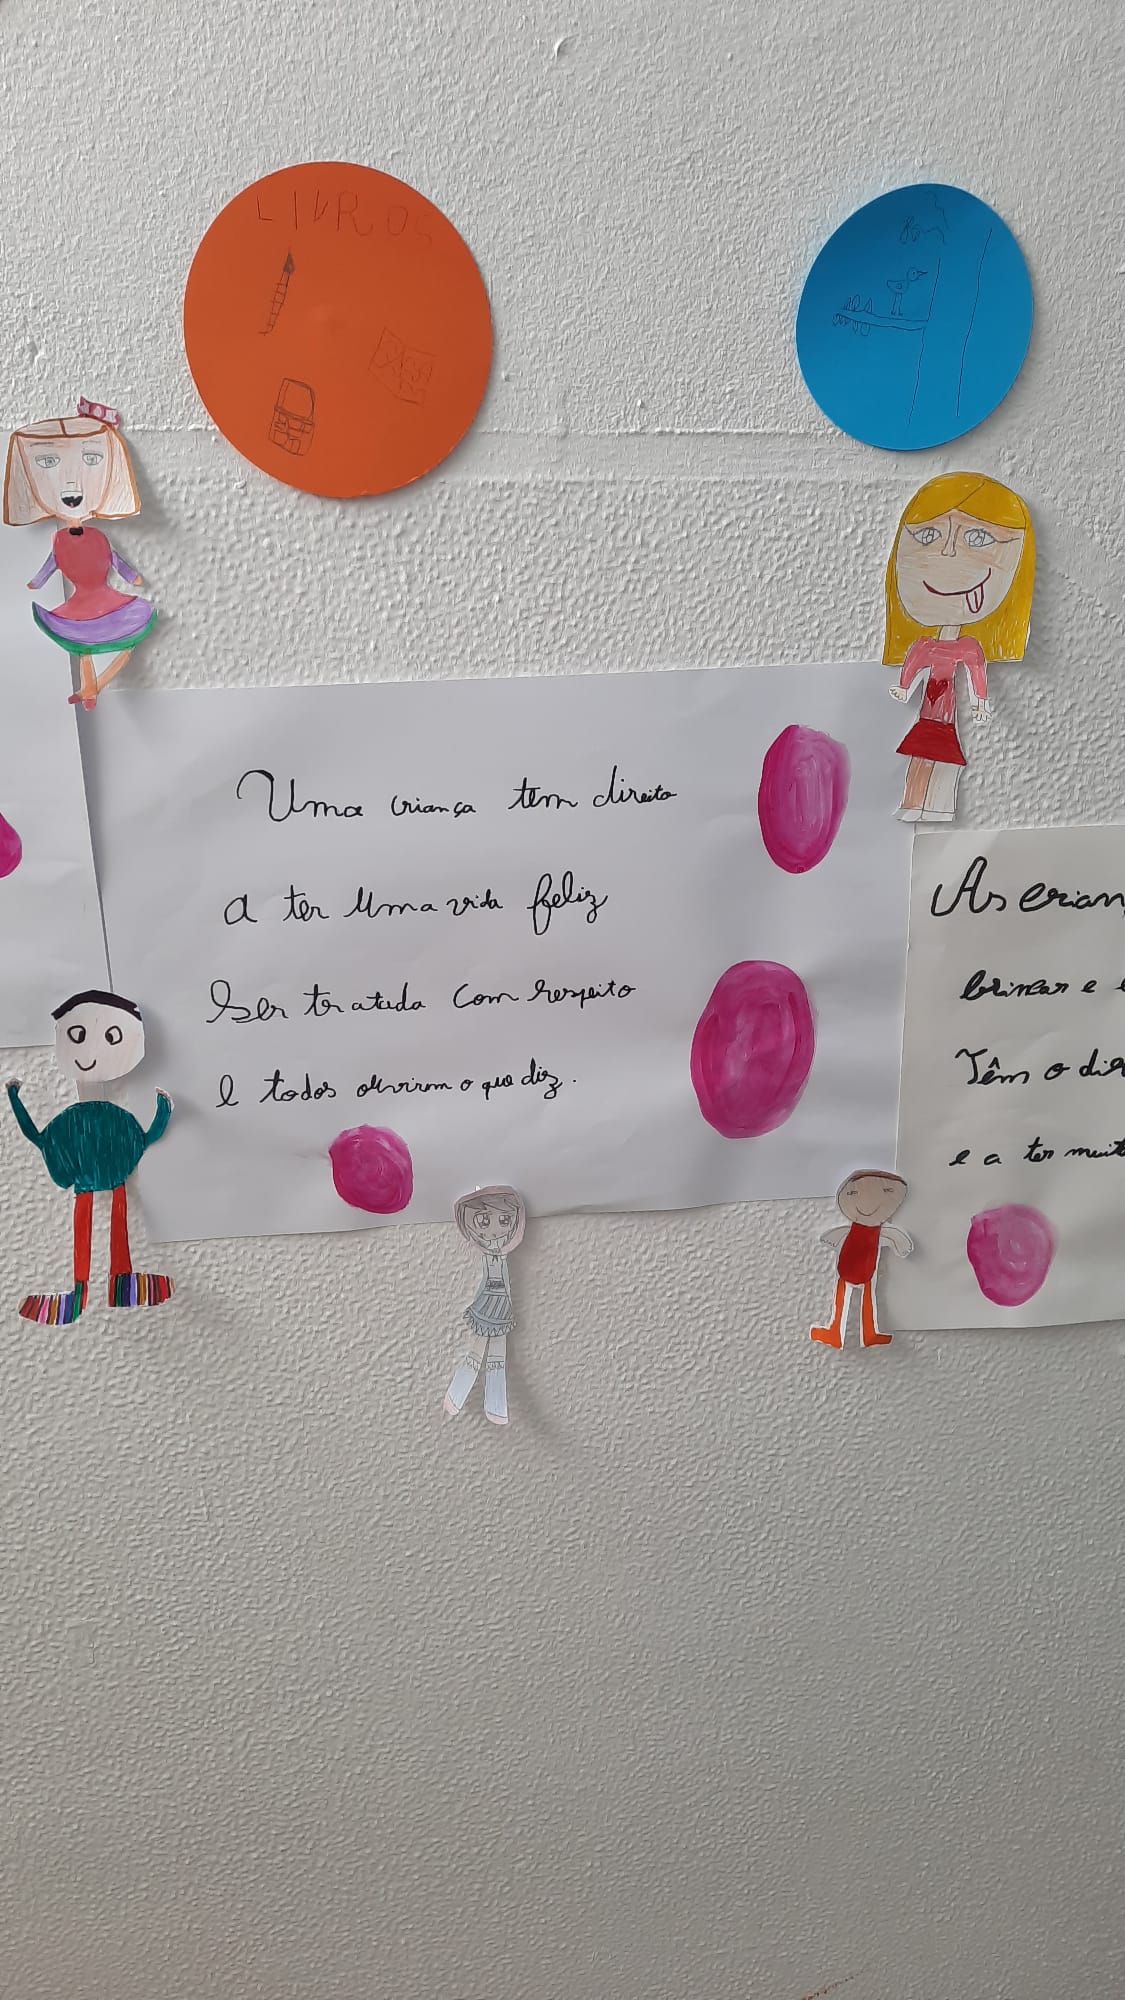 LIVROS
Uma criança tem direito
a ter uma vida feliz
Ser tratada com respeito
e todos ouvirem o que diz.
As crian
brincar e
Têm o dir
e a ter muit